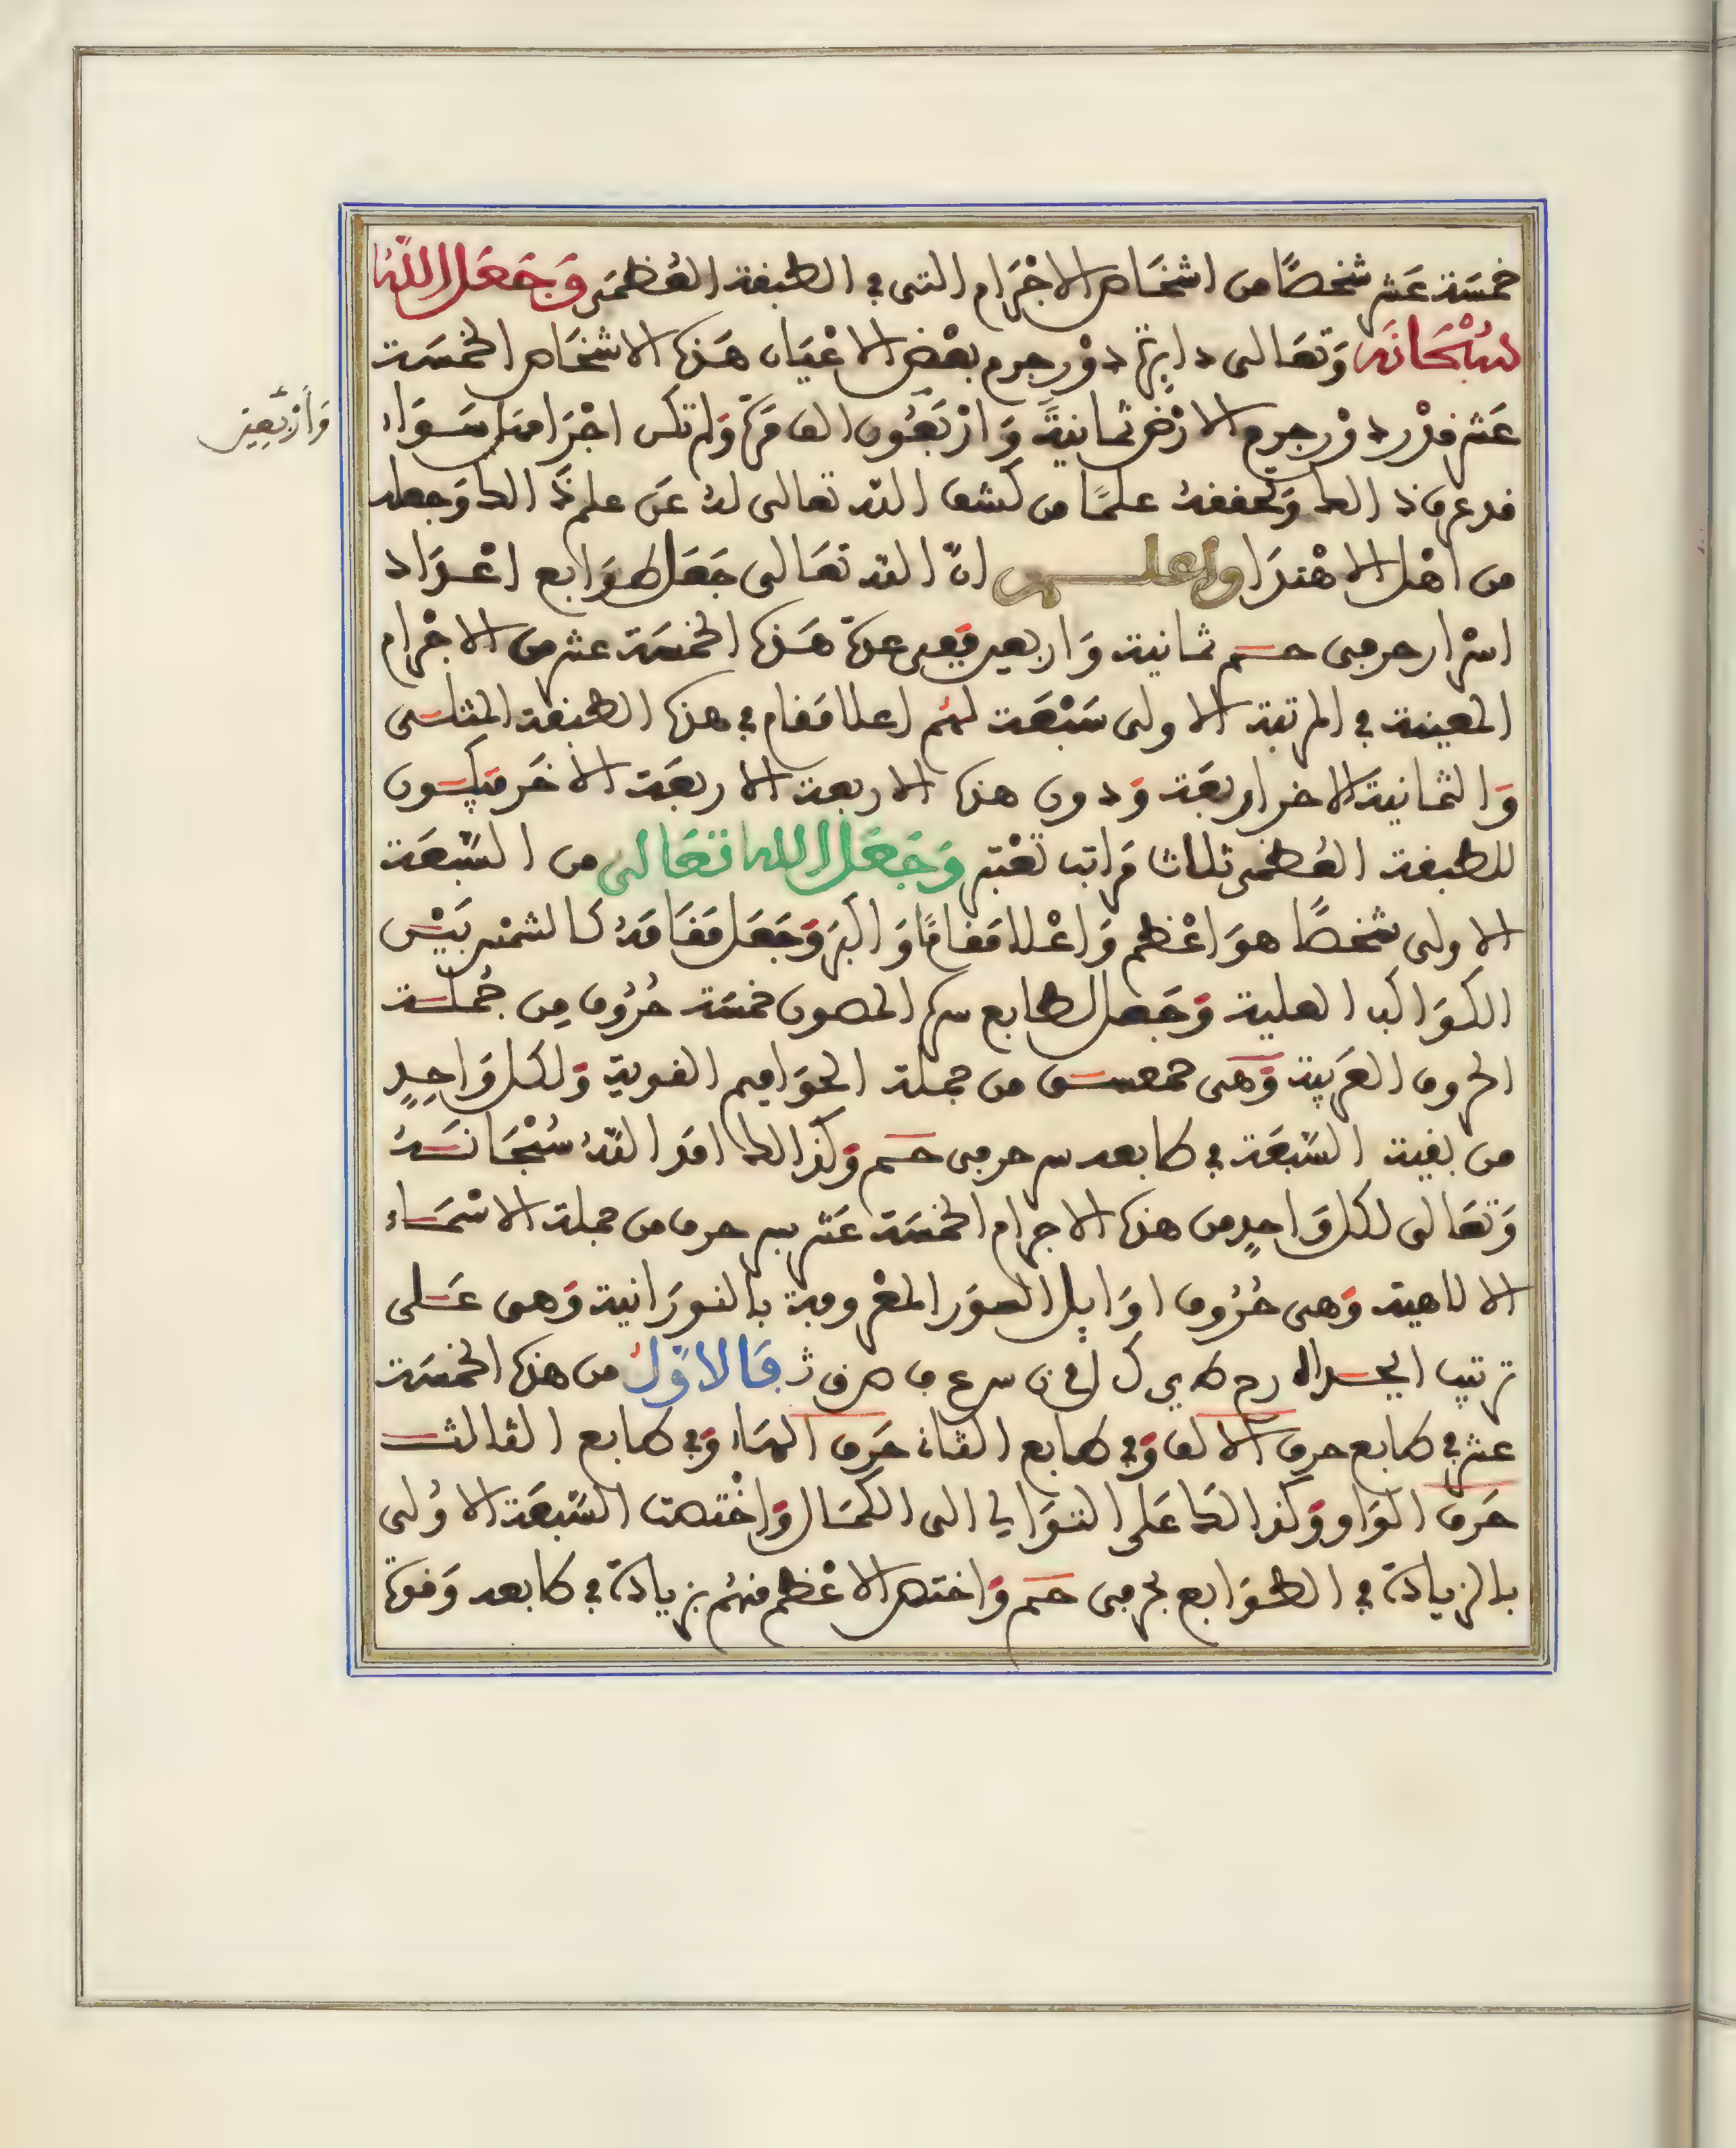 خمسَة عَشر شخصًا من اشخَاص الاجْرَام التى في الطبقة العُظمَى وَجَعَل اللّهُ
سُبْحَانَه وَتعَالى دايرة دوْر جرم بعْض الاعْيَان هَذه الاشخَاص الخمسَة
عَشر قدْر دوْر جرم الارْض ثمانيةً وَارْبَعُون الف مَرّة وَلم تكن اجْرَامهَا سَوَاء
وَأرْبَعِين
قد عرف ذالك وَتحققهُ علمًا من كشف اللّه تعالى لهُ عَن علم ذَالك وَجعله
من اهْل الاهْتدَا واعلـــم انّ اللّه تعَالى جَعَل طوَابع اعْدَاد
اسْرار حرفى حـم ثمانية وَاربعين فَفِى عدّة هَذه الخمسَة عشر من الاجْرام
المعينة في المرتبة الاولى سَبْعَة لهُم اعلا مَقام في هذه الطبقة المثلـى
وَالثمانية الاخر اربعَة وَدون هذه الاربعة الاربعَة الاخَر فيكـون
للطبقة العُظمَى ثلاث مَراتب تعْتبر وَجَعَل الله تعَالى من السّبعَة
الاولى شخصًا هوَ اعْظم وَاعْلا مَقامًا وَاكبَر وَجَعَل مَقَامَهُ كالشمْس بَيْـن
الكوَاكب العلية وَجَعل لطابع سره المصون خمسَة حُرُوف مِن جُملـة
الحروف العَربية وَهى حمعسـق من جملة الحوَاميم القوية وَلكل وَاحِدٍ
من بقية السّبعَة في طابعه سر حرفى حـم وَكذالك امَد اللّهُ سُبْحَانـهُ
وَتعَالى لكل وَاحدٍ من هذه الاجرام الخمسَة عَشر بسر حرف من جملة الاسْمَـاء
الالاهية وَهى حُرُوف اوَايل السوَر المعْروفة بالنورَانية وَهى عَـلى
من هذه الخمسَة
عشر في طابع حرف الالف وَفي طابع الثاني حَرف الهَاء وَفي طابع الثالثـ
حَرف الوَاو وَكذالك عَلى التوَالي الى الكمَال وَاخْتصت السّبعَة الاوُلى
بالزيادة في الطوَابع بحرفى حـم وَاختص الاعْظم منهُم بزيادة في طابعه وَقوة